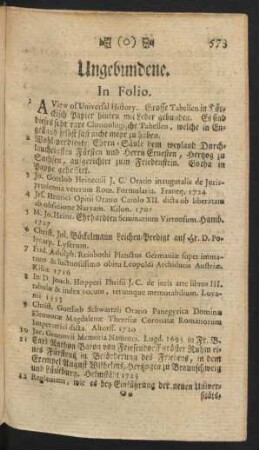 (o) 573
Ungebundene.
In Folio.
1 A View of Universal History. Grosse Tabellen in Tür-
ckisch Papier hinten mit Leder gebunden. Es sind
dieses sehr rare Chronologische Tabellen, welche in En-
gelland selbst fast nicht mehr zu haben.
2 Wohlverdiente Ehren-Säule dem weyland Durch-
lauchtigsten Fürsten und Herrn Ernesten, Hertzog zu
Sachsen, aufgerichtet zum Friedenstein. Gotha in
Pappe geheftet.
3 Jo. Gottlieb Heineccii J. C. Oratio inauguralis de Juris-
prudentia veterum Rom. Formularia. Francq. 1724
4 Jo. Henrici Opitii Oratio Carolo XII. dicta ob liberatam
ab obsidione Narvam. Kilon. 1701
5 M. Jo. Heinr. Ehrhardten Seminarium Virtuosum. Hamb.
1727
6 Christ. Jul. Böckelmann Leichen-Predigt auf Hr. D. Po-
lycarp. Lyserum.
7 Frid. Adolph. Reinbothi Planctus Germaniæ super imma-
turo & luctuosissimo obitu Leopoldi Archiducis Austriæ.
Kilon. 1716
8 In D. Joach. Hopperi Phrisii J. C. de juris arte libros III.
tabulæ & index novus, rerumque memorabilium. Lova-
nii 1555
9 Christi. Gottlieb Schwartzii Oratio Panegyrica Dominæ
Eleonoræ Magdalenæ Theresiæ Coronatæ Romanorum
Imperatrici dicta. Altorff. 1720
10 Jac. Gronovii Memoria Nannons. Lugd. 1695 in Fr. B.
11 Carl Anthon Baron von
eines Fürstens in Beförderung des Friedens, in dem
Exempel August Wilhelms, Hertzogen zu Braunschweig
und Lüneburg. Helmstädt 1725
12 Reglement, wie es bey Einführung der neuen Univer-
sitäts-